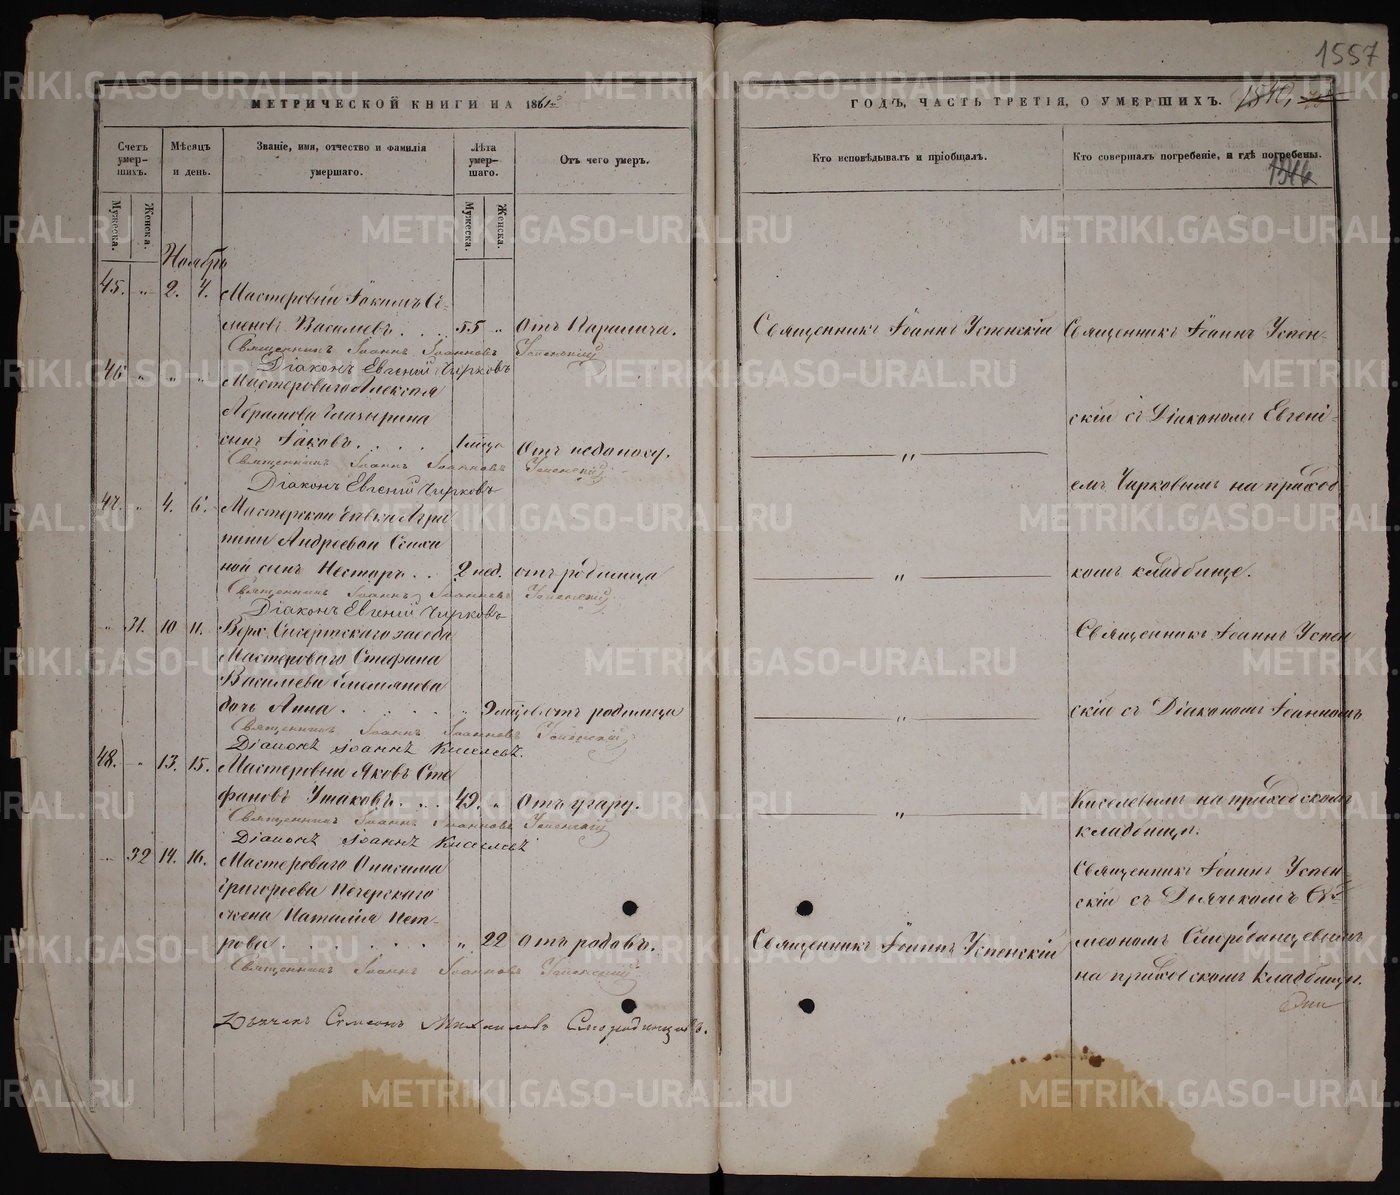 1557
МЕТРИЧЕСКОЙ КНИГИ НА 1861й
ГОДЪ, ЧАСТЬ ТРЕТІЯ, О УМЕРШИХЪ.
Счетъ умер-шихъ.
Мужеска.
Женска.
Мѣсяцъ и день.
Званіе, имя, отчество и фамилія умершаго.
Лѣта умер-шаго.
Мужеска.
Женска.
Отъ чего умеръ.
Кто исповѣдывалъ и пріобщалъ.
Кто совершалъ погребеніе, и гдѣ погребены.
1316
Ноябрь
45. " 2. 4. Мастеровый Іакимъ Си-
меновъ Василіевъ . . . 55 " отъ Паралича.
Священникъ Іоаннъ Іоанновъ Успенскій
Діаконъ Евгеній Чирковъ
46 " " " Мастероваго Алексѣя
Абрамова Глазырина
сынъ Іаковъ . . . . 1 мѣсца отъ недоносу.
Священникъ Іоаннъ Іоанновъ Успенскій
Діаконъ Евгеній Чирковъ
47. " 4. 6. Мастерской дѣвки Агри
пины Андреевой
ной сынъ Несторъ . . 2 нед. отъ родимца
Священникъ Іоаннъ Іоанновъ Успенскій
Діаконъ Евгеній Чирковъ
" 31. 10 11. Верх. Сысертскаго завода
Мастероваго Стефана
Василіева Емельянова
дочь Анна . . . . . " 9 мѣсцевъ отъ родимца
Священникъ Іоаннъ Іоанновъ Успенскій
Діаконъ Іоаннъ Киселевъ.
48. " 13. 15. Мастеровый Яковъ Сте
фановъ Ушаковъ . . . 49. " Отъ угару.
Священникъ Іоаннъ Іоанновъ Успенскій
Діаконъ Іоаннъ Киселевъ
" 32 14. 16. Мастероваго Онисима
Григорьева Печерскаго
жена Наталія Пет-
рова . . . . . . . " 22 отъ родовъ.
Священникъ Іоаннъ Іоанновъ Успенскій
Дьячекъ Симеонъ Михаиловъ Смородинцовъ.
Священникъ Іоаннъ Успенскій
"
"
"
"
Священникъ Іоаннъ Успенскій
Священникъ Іоаннъ Успен-
скій съ Діакономъ Евгені-
емъ Чирковымъ на приход
комъ кладбище.
Священникъ Іоаннъ Успен
скій съ Діакономъ Іоанномъ
Киселевымъ на приходскомъ
кладбищѣ.
Священникъ Іоаннъ Успен-
скій съ Дьячкомъ Си
меономъ Смородинцевымъ
на приходскомъ кладбищѣ.
METRIKI.GASO-URAL.RU